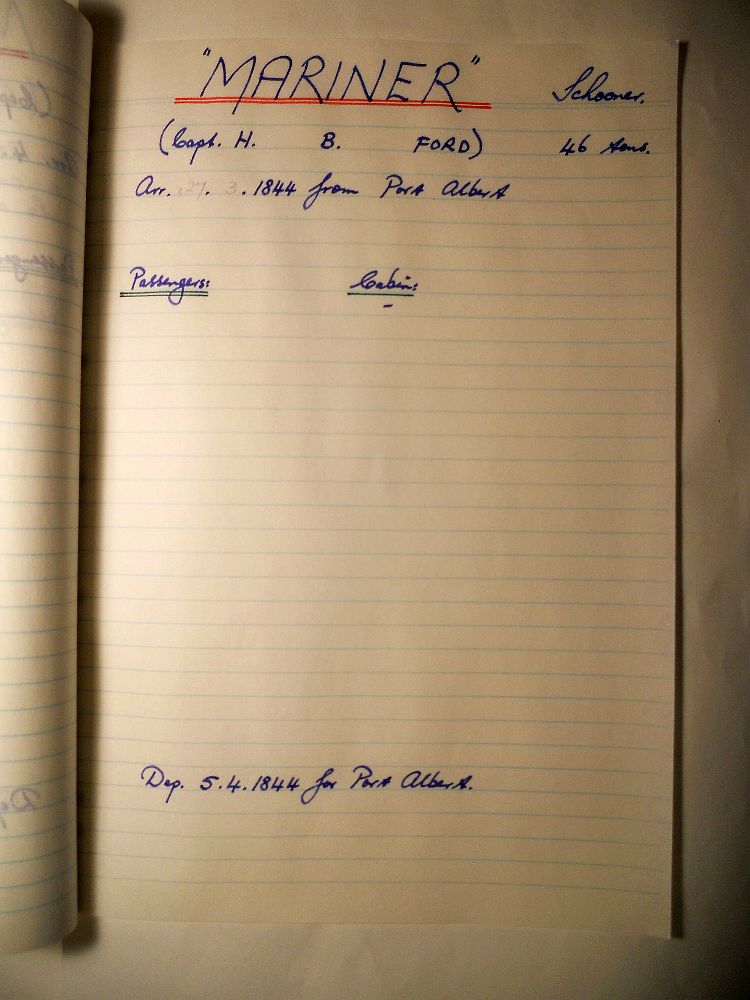 "MARINER" Schooner.
(Capt. H. B. FORD) 46 tons.
Arr. 27. 3. 1844 from Port Albert
Passengers: Cabin:
-
Dep. 5.4.1844 for Port Albert.